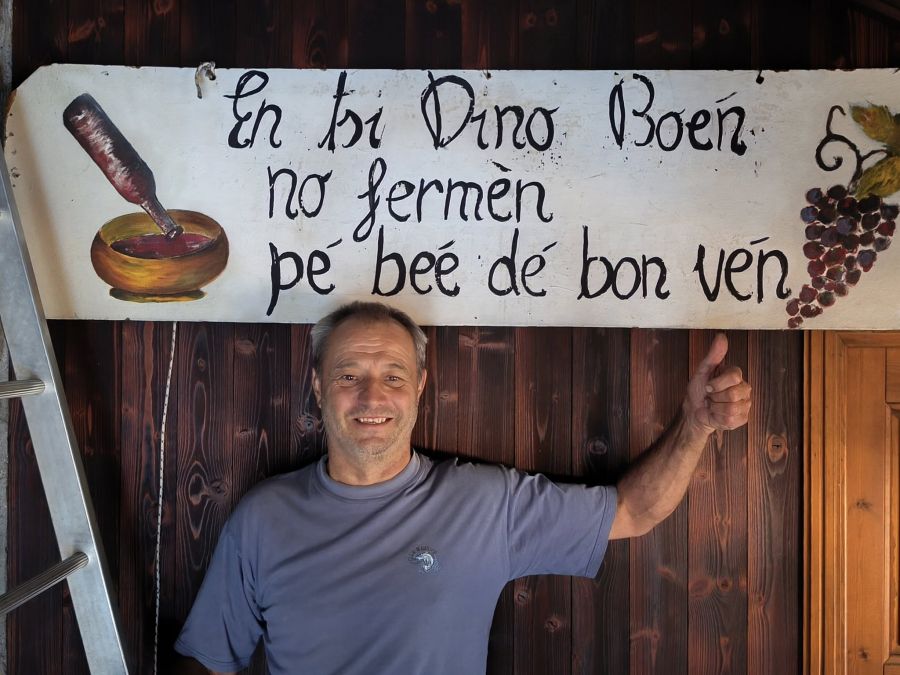 En tsi Dino Boén
no fermèn
pé beé dé bon vén